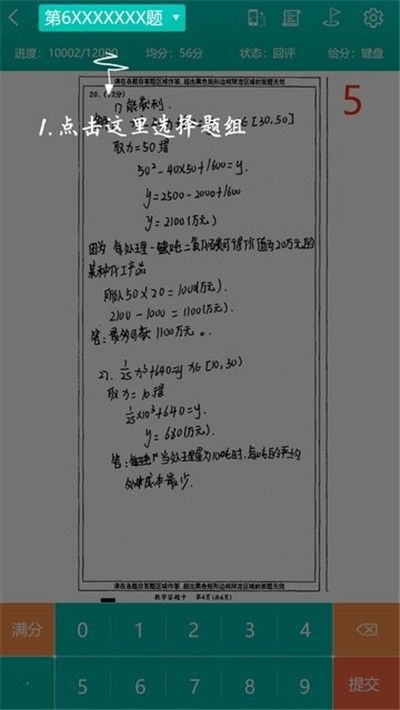 第6XXXXXXX题
进度：10002/12000 均分：56分 状态：回评 给分：键盘
请在各题目答题区域作答，超出黑色矩形边框限定区域的答案无效
20.(12分)
1) 能获利.
[30,50]
1.点击这里选择题组
取x=50得
50²-40×50+1600=y.
y=2500-2000+1600
y=2100(万元)
因为 每处理一吨二氧化碳可得价值为20万元的
某种化工产品
所以 50×20=1000(万元).
2100-1000=1100(万元)
答：最多可获 1100万元。
2). 1/25 x³+640=y x∈[10,30)
取x=10得
1/25×10³+640=y.
y=680(万元).
答：当处理量为10吨时,每吨的平均
处理成本最少.
请在各题目答题区域作答，超出黑色矩形边框限定区域的答案无效
数学答题卡 第4页(共6页)
5
满分 0 1 2 3 4
. 5 6 7 8 9 提交